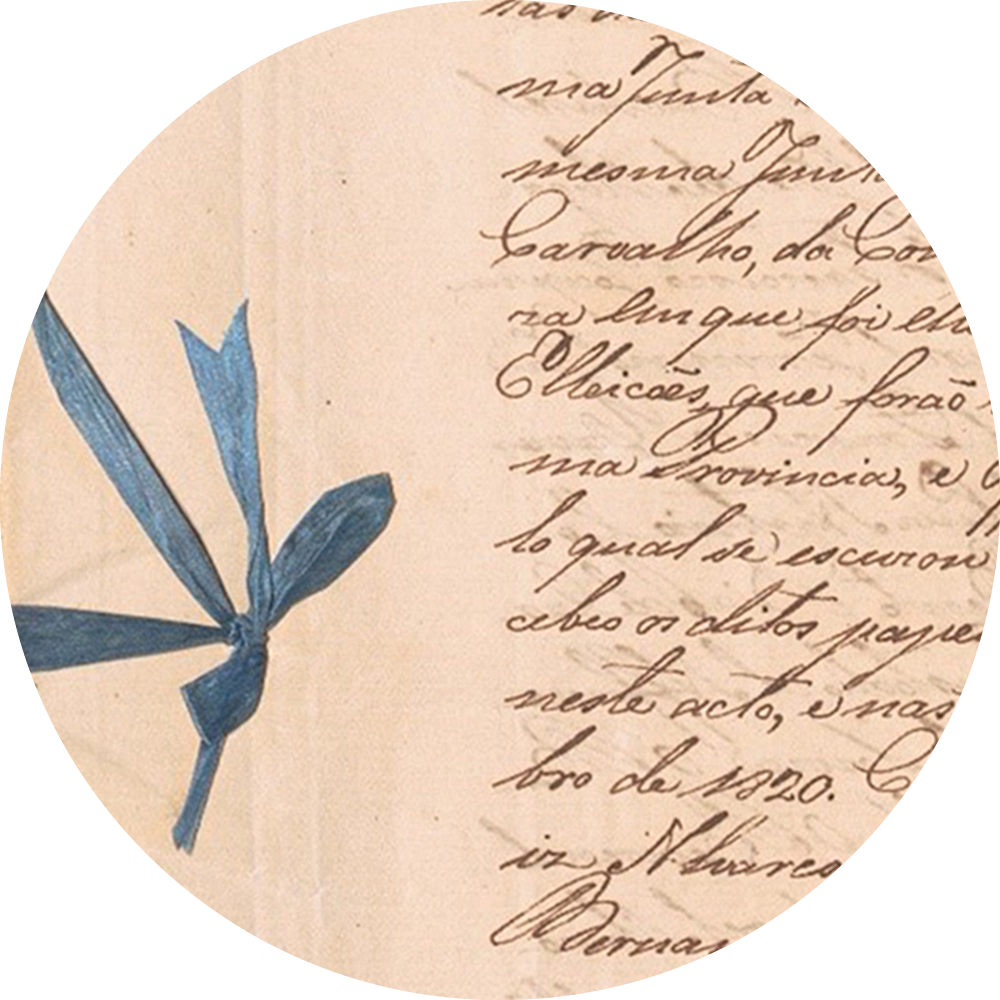 ma Junta
mesma Junt
Carvalho, da Con
ra em que foi ele
Elleicoẽs, que foraõ
ma Provincia, e
lo qual se escuzou
cebeo os ditos pape
neste acto, e nas
bro de 1820. C
iz Alvares
Bernar